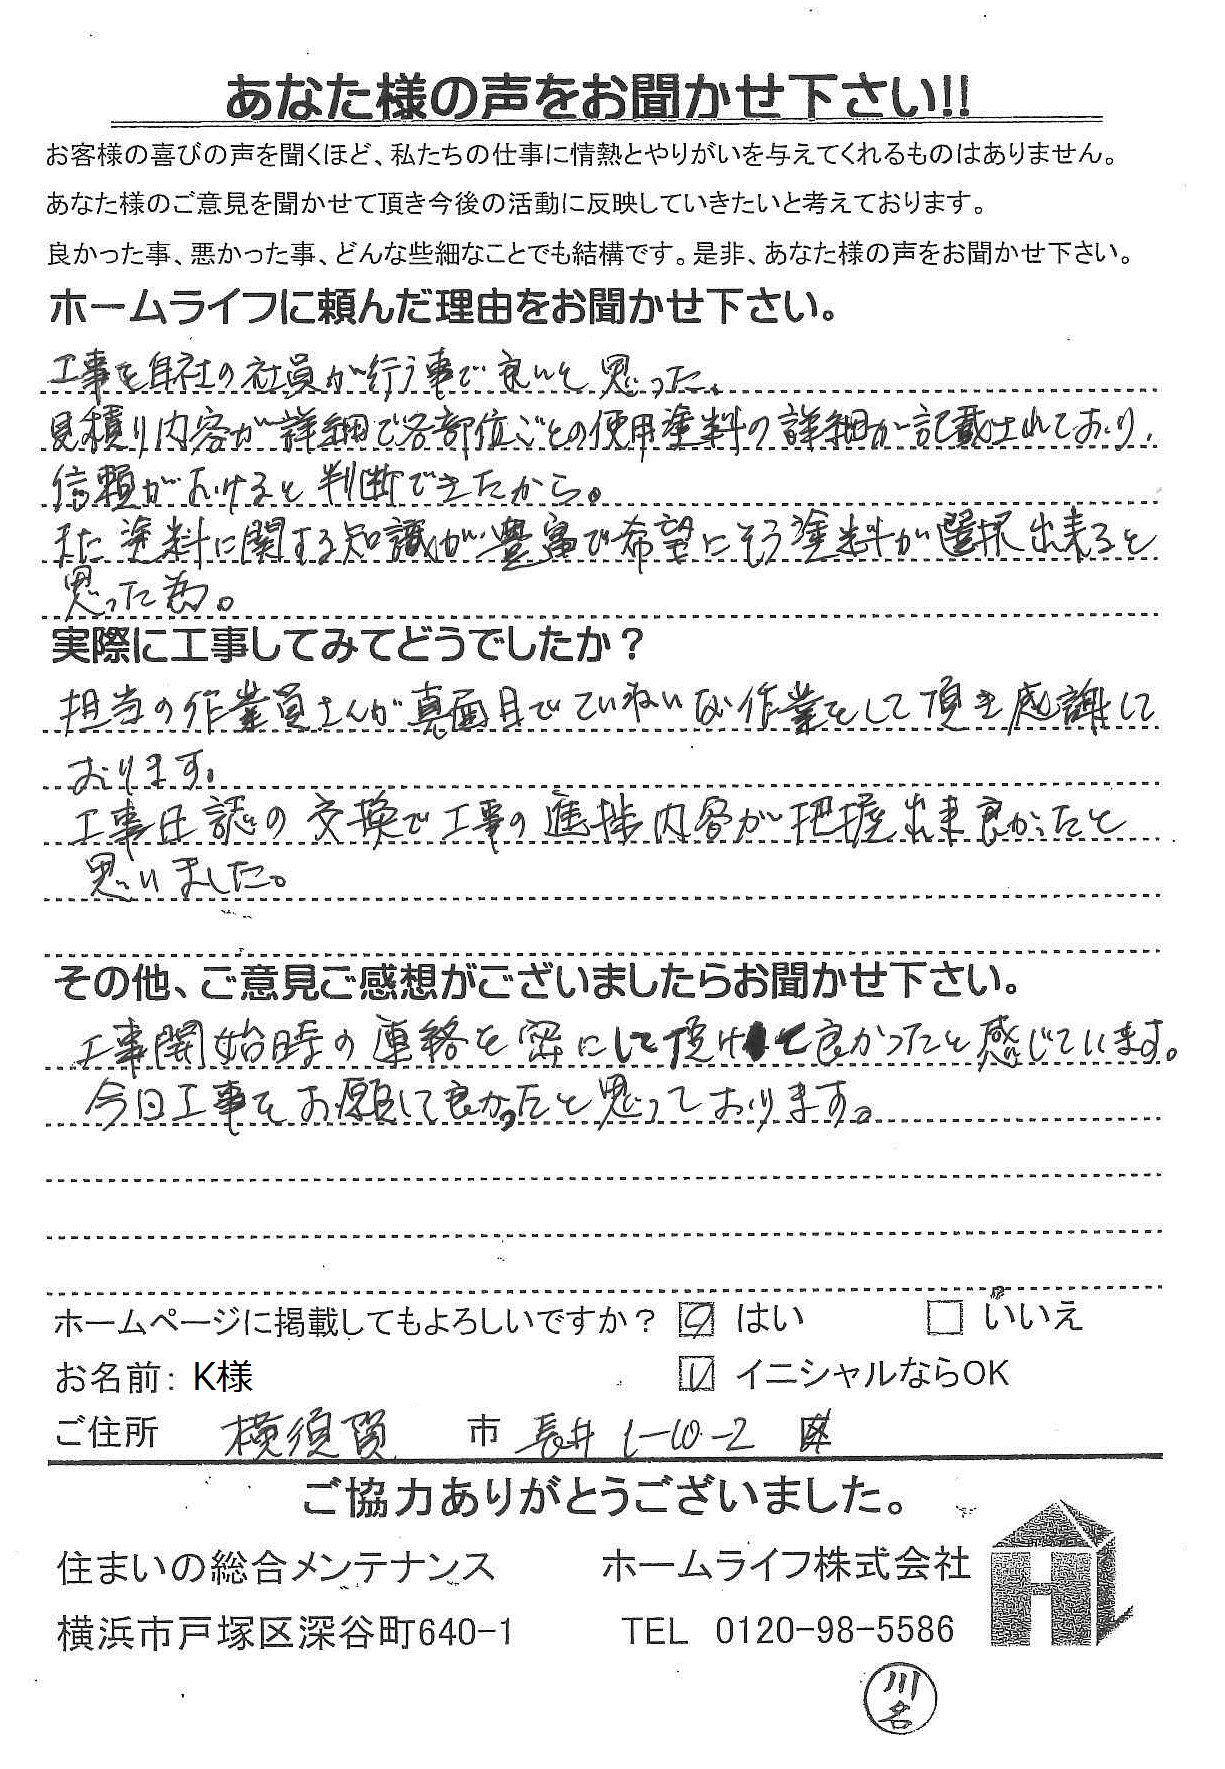 あなた様の声をお聞かせ下さい!!
お客様の喜びの声を聞くほど、私たちの仕事に情熱とやりがいを与えてくれるものはありません。
あなた様のご意見を聞かせて頂き今後の活動に反映していきたいと考えております。
良かった事、悪かった事、どんな些細なことでも結構です。是非、あなた様の声をお聞かせ下さい。
ホームライフに頼んだ理由をお聞かせ下さい。
工事を自社の社員が行う事で良いと思った。
見積り内容が詳細で各部位ごとの使用塗料の詳細が記載されており、
信頼がおけると判断できたから。
また塗料に関する知識が豊富で希望にそう塗料が選択出来ると
思った為。
実際に工事してみてどうでしたか？
担当の作業員さんが真面目でていねいな作業をして頂き感謝して
おります。
工事日誌の交換で工事の進捗内容が把握出来良かったと
思いました。
その他、ご意見ご感想がございましたらお聞かせ下さい。
工事開始時の連絡を密にして頂けて良かったと感じています。
今回工事をお願して良かったと思っております。
ホームページに掲載してもよろしいですか？ はい いいえ
お名前: K様 イニシャルならOK
ご住所 横須賀 市 長井 1-10-2 区
ご協力ありがとうございました。
住まいの総合メンテナンス ホームライフ株式会社
横浜市戸塚区深谷町640-1 TEL 0120-98-5586
川名